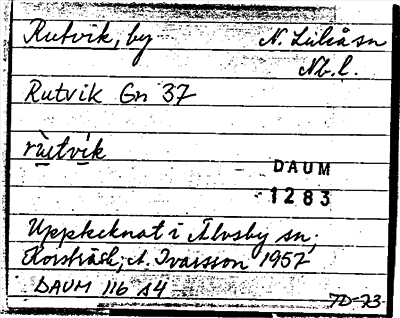 Rutvik, by N. Luleå sn
Nb. l.
Rutvik Gn 37
rùtvík
DAUM
1283
Upptecknat i Älvsby sn,
Korsträsk, A. Ivarsson 1957
DAUM 116 s4